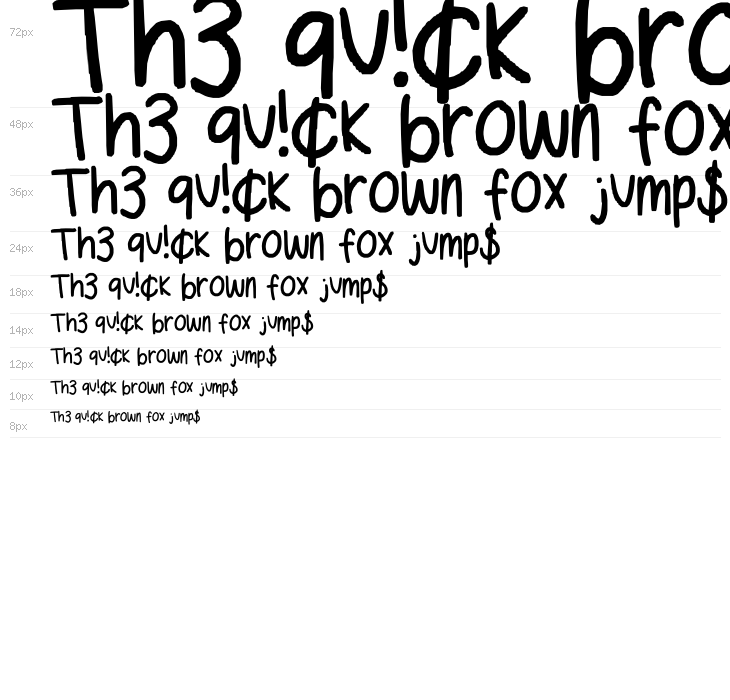 72px Th3 qu!¢k bro
48px Th3 qu!¢k brown fox
36px Th3 qu!¢k brown fox jump$
24px Th3 qu!¢k brown fox jump$
18px Th3 qu!¢k brown fox jump$
14px Th3 qu!¢k brown fox jump$
12px Th3 qu!¢k brown fox jump$
10px Th3 qu!¢k brown fox jump$
8px Th3 qu!¢k brown fox jump$